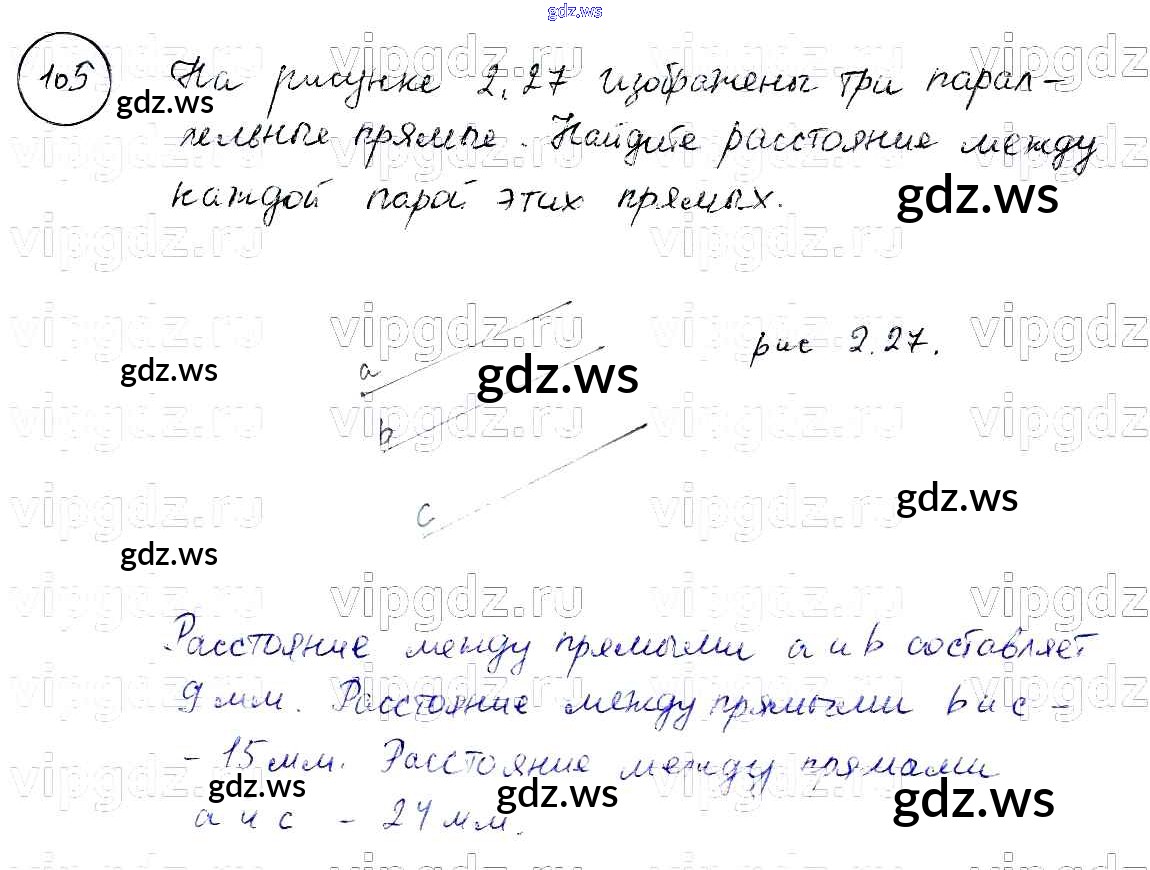 gdz.ws
105 На рисунке 2.27 изображены три парал-
лельные прямые. Найдите расстояние между
каждой парой этих прямых.
gdz.ws
gdz.ws
vipgdz.ru
a
b
c
рис 2.27.
gdz.ws
gdz.ws
gdz.ws
gdz.ws
Расстояние между прямыми a и b составляет
9 мм. Расстояние между прямыми b и c -
- 15 мм. Расстояние между прямами
a и c - 24 мм.
gdz.ws
gdz.ws
gdz.ws